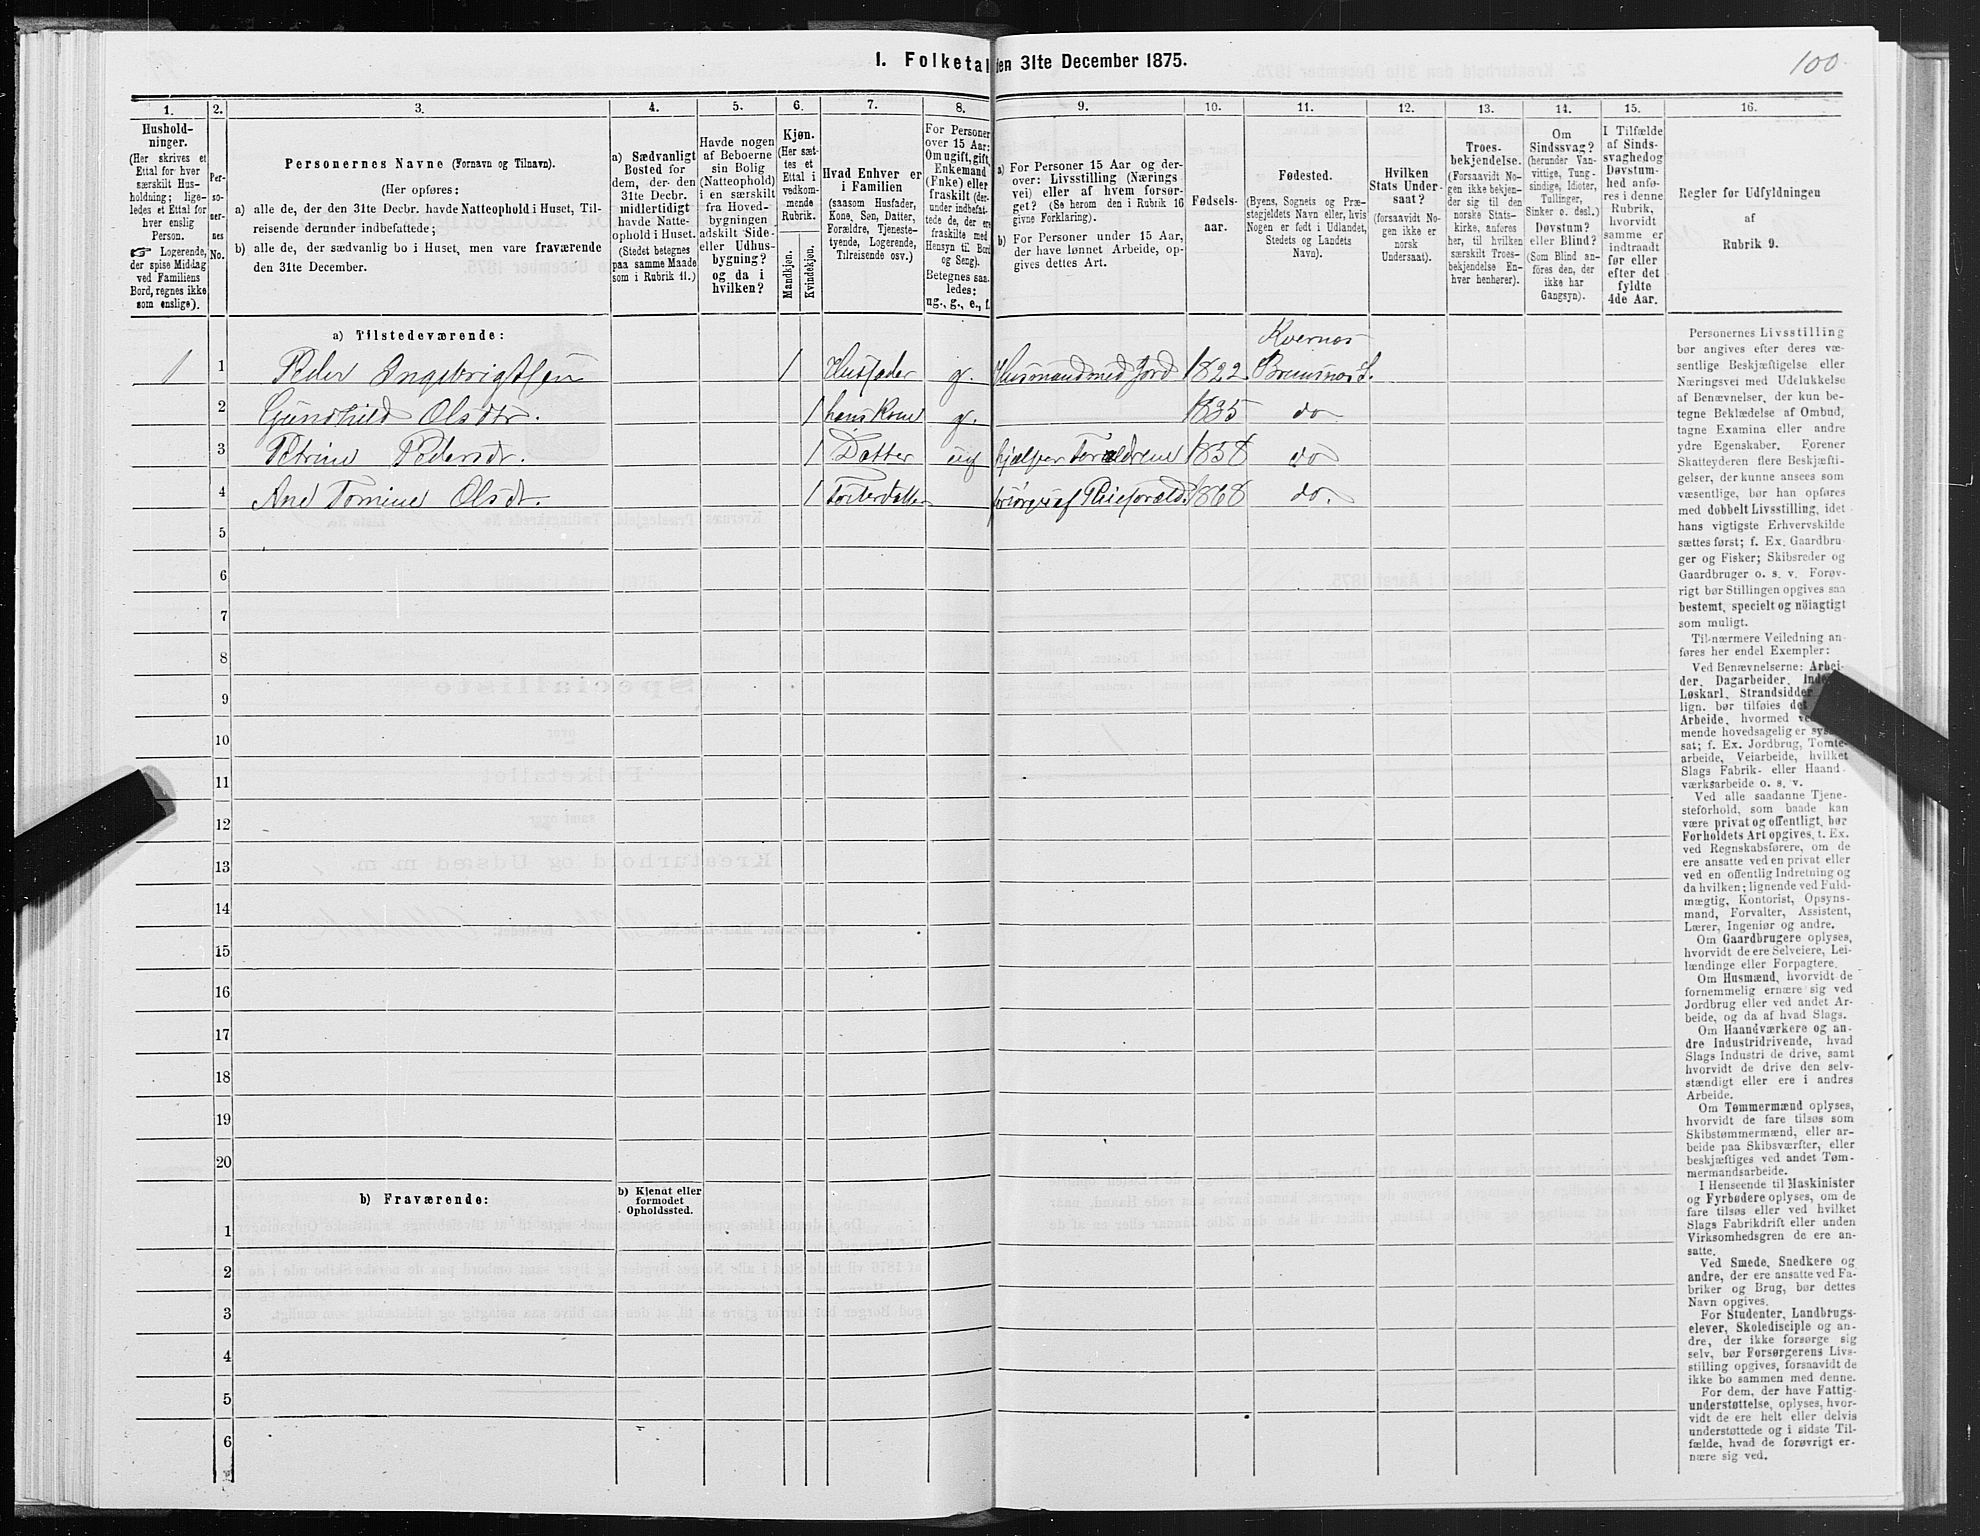 1. Folketal
den 31te December 1875.
100
1.
2.
3.
4.
5.
6.
7.
8.
9.
10.
11.
12.
13.
14.
15.
16.
Hushold-
ninger.
(Her skrives et
Ettal for hver
særskilt Hus-
holdning; lige-
ledes et Ettal for
hver enslig
Person.
☞ Logerende,
der spise Middag
ved Familiens
Bord, regnes ikke
som enslige).
Per-
so-
ner-
nes
No.
Personernes Navne (Fornavn og Tilnavn).
(Her opføres:
a) alle de, der den 31te Decbr. havde Natteophold i Huset, Til-
reisende derunder indbefattede;
b) alle de, der sædvanlig bo i Huset, men vare fraværende
den 31te December.
a) Sædvanligt
Bosted for
dem, der den
31te Decbr.
midlertidigt
havde Natte-
ophold i Huset.
(Stedet betegnes
paa samme Maade
som i Rubrik 11.)
Havde nogen
af Beboerne
sin Bolig
(Natteophold)
i en særskilt
fra Hoved-
bygningen
adskilt Side-
eller Udhus-
bygning?
og da i
hvilken?
Kjøn.
(Her sæt-
tes et
Ettal i
vedkom-
mende
Rubrik.
Mandkjøn.
Kvindekjøn.
Hvad Enhver er
i Familien
(saasom Husfader,
Kone, Søn, Datter,
Forældre, Tjeneste-
tyende, Logerende,
Tilreisende osv.)
For Personer
over 15 Aar:
Om ugift, gift,
Enkemand
(Enke) eller
fraskilt (der-
under indbefat-
tede de, der ere
fraskilte med
Hensyn til Bord
og Seng).
Betegnes saa-
ledes:
ug., g., e., f.
a) For Personer 15 Aar og der-
over: Livsstilling (Nærings
vei) eller af hvem forsør-
get? (Se herom den i Rubrik 16
givne Forklaring).
b) For Personer under 15 Aar,
der have lønnet Arbeide, op-
gives dettes Art.
Fødsels-
aar.
Fødested.
(Byens, Sognets og Præ-
stegjeldets Navn eller, hvis
Nogen er født i Udlandet,
Stedets og Landets
Navn).
Hvilken
Stats Under-
saat?
(forsaavidt No-
gen ikke er
norsk
Undersaat).
Troes-
bekjendelse.
(Forsaavidt No-
gen ikke bekjen-
der sig til den
norske Stats-
kirke, anføres
her, til hvilken
særskilt Troes-
bekjendelse En-
hver henhører).
Om
Sindssvag?
(herunder Van-
vittige, Tung-
sindige, Idioter,
Tullinger,
Sinker o. desl.)
Døvstum?
eller Blind?
(Som Blind an-
føres den, der
ikke har
Gangsyn).
I Tilfælde
af Sinds-
svaghed og
Døvstum-
hed anfø-
res i denne
Rubrik,
hvorvidt
samme er
indtraadt
før eller
efter det
fyldte
4de Aar.
Regler for Udfyldningen
af
Rubrik 9.
a) Tilstedeværende:
Kvernes
1 1 Peder Ingebrigtsen 1 Husfader g. Husmand med Jord 1822 Bremsnes S.
2 Gundhild Olsdtr. 1 hans Kone g. 1835 do
3 Petrine Pedersdr. 1 Datter ug hjælper Forældrene 1858 do
4 Ane Tomine Olsdr. 1 Fosterdatter forsørges af Pleieforæld. 1868 do.
5
6
7
8
9
10
11
12
13
14
15
16
17
18
19
20
b) Fraværende:
b) Kjendt eller
formodet
Opholdssted.
1
2
3
4
5
6
Personernes Livsstilling
bør angives efter deres væ-
sentlige Beskjæftigelse eller
Næringsvei med Udelukkelse
af Benævnelser, der kun be-
tegne Beklædelse af Ombud,
tagne Examina eller andre
ydre Egenskaber. Forener
Skatteyderen flere Beskjæfti-
gelser, der kunne ansees som
væsentlige, bør han opføres
med dobbelt Livsstilling, idet
hans vigtigste Erhvervskilde
sættes først; f. Ex. Gaardbru-
ger og Fisker; Skibsreder og
Gaardbruger o. s. v. Forøv-
rigt bør Stillingen opgives saa
bestemt, specielt og nöiagtigt
som muligt.
Til nærmere Veiledning an-
føres her endel Exempler:
Ved Benævnelserne: Arbei-
der, Dagarbeider,
Løskarl, Strandsidder
lign. bør tilføies det
Arbeide, hvormed
mende hovedsagelig er
sat; f. Ex. Jordbrug, Tomte-
arbeide, Veiarbeide, hvilket
Slags Fabrik- eller Haand-
værksarbeide o. s. v.
Ved alle saadanne Tjene-
steforhold, som baade kan
være privat og offentligt, bør
Forholdets Art opgives, t. Ex.
ved Regnskabsførere, om de
ere ansatte ved en privat eller
ved en offentlig Indretning og
da hvilken; lignende ved Fuld-
mægtig, Kontorist, Opsyns-
mand, Forvalter, Assistent,
Lærer, Ingeniør og andre.
Om Gaardbrugere oplyses,
hvorvidt de ere Selveiere, Lei-
lændinge eller Forpagtere.
Om Husmænd, hvorvidt de
fornemmelig ernære sig ved
Jordbrug eller ved andet Ar-
beide, og da af hvad Slags.
Om Haandværkere og an-
dre Industridrivende, hvad
Slags Industri de drive, samt
hvorvidt de drive den selv-
stændigt eller ere i andres
Arbeide.
Om Tømmermænd oplyses,
hvorvidt de fare tilsøs som
Skibstømmermænd, eller ar-
beide paa Skibsværfter, eller
beskjæftiges ved andet Tøm-
mermandsarbeide.
I Henseende til Maskinister
og Fyrbødere oplyses, om de
fare tilsøs eller ved hvilket
Slags Fabrikdrift eller anden
Virksomhedsgren de ere an-
satte.
Ved Smede, Snedkere og
andre, der ere ansatte ved Fa-
briker og Brug, bør dettes
Navn opgives.
For Studenter, Landbrugs-
elever, Skoledisciple og an-
dre, der ikke forsørge sig
selv, bør Forsørgerens Livs-
stilling opgives, forsaavidt de
ikke bo sammen med denne.
For dem, der have Fattig-
understøttelse, oplyses, hvor-
vidt de ere helt eller delvis
understøttede og i sidste Til-
fælde, hvad de forøvrigt er-
nære sig ved.